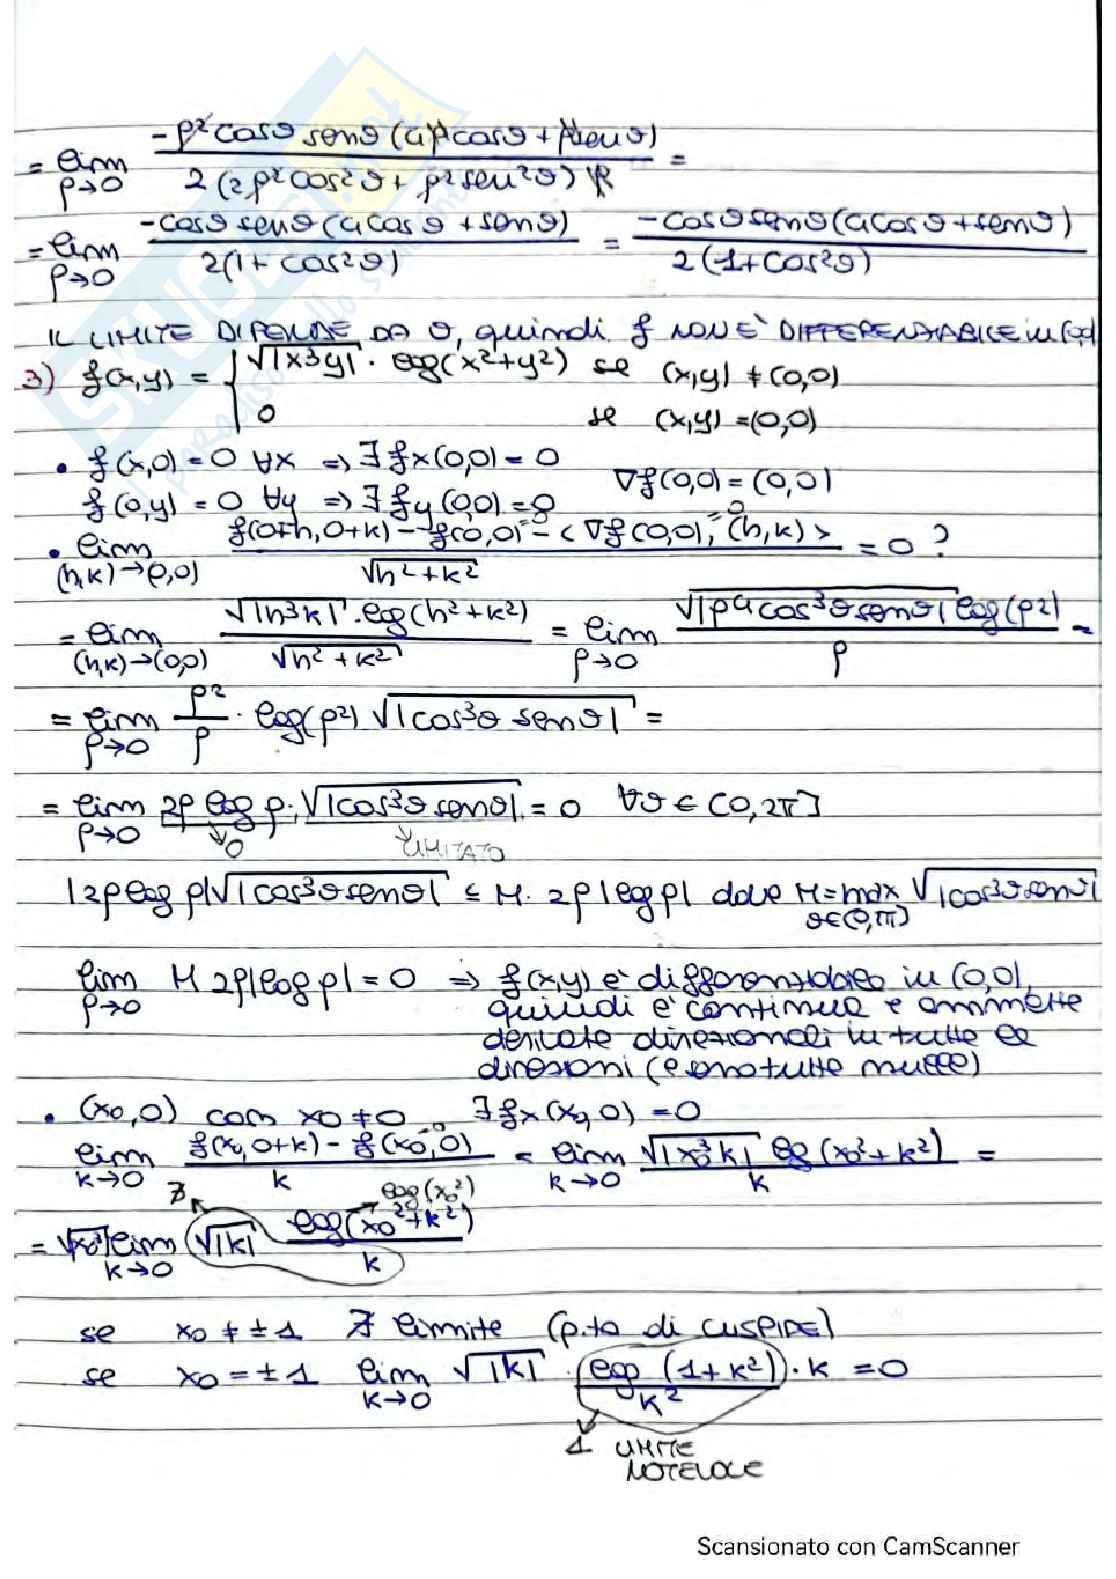 = lim ρ→0 -ρ² cosθ senθ (4ρcosθ + ρsenθ) / 2(2ρ²cos²θ + ρ²sen²θ)ρ =
= lim ρ→0 -cosθ senθ (4cosθ + senθ) / 2(1+cos²θ) = -cosθ senθ (4cosθ + senθ) / 2(1+cos²θ)
IL LIMITE DIPENDE DA θ, quindi f NON E' DIFFERENZIABILE in (0,0)
3) f(x,y) = { √|x³y| · log(x²+y²) se (x,y) ≠ (0,0)
0 se (x,y) = (0,0)
• f(x,0) = 0 ∀x => ∃ fx(0,0) = 0
∇f(0,0) = (0,0)
f(0,y) = 0 ∀y => ∃ fy(0,0) = 0
• lim (h,k)→(0,0) f(0+h,0+k) - f(0,0) - <∇f(0,0),(h,k)> / √h²+k² = 0 ?
= lim (h,k)→(0,0) √|h³k| · log(h²+k²) / √h²+k² = lim ρ→0 √|ρ⁴cos³θ senθ| log(ρ²) / ρ =
= lim ρ→0 ρ²/ρ · log(ρ²) √|cos³θ senθ| =
= lim ρ→0 2ρ log ρ · √|cos³θ senθ| = 0 ∀θ ∈ [0,2π]
→0 LIMITATO
|2ρ log ρ| √|cos³θ senθ| ≤ M · 2ρ |log ρ| dove M = max √|cos³θ senθ|
lim ρ→0 M 2ρ|log ρ| = 0 => f(x,y) e' differenziabile in (0,0),
quindi e' continua e ammette
derivate direzionali in tutte le
direzioni (e sono tutte nulle)
• (x0,0) con x0 ≠ 0 ∃ fx(x0,0) = 0
lim k→0 f(x0,0+k) - f(x0,0) / k = lim k→0 √|x0³k| log(x0²+k²) / k =
∄ log(x0²)
= √|x0³| lim k→0 √|k| log(x0²+k²) / k
se x0 ≠ ±1 ∄ limite (p.to di CUSPIDE)
se x0 = ±1 lim k→0 √|k| · log(1+k²) / k² · k = 0
1 LIMITE
NOTEVOLE
Scansionato con CamScanner